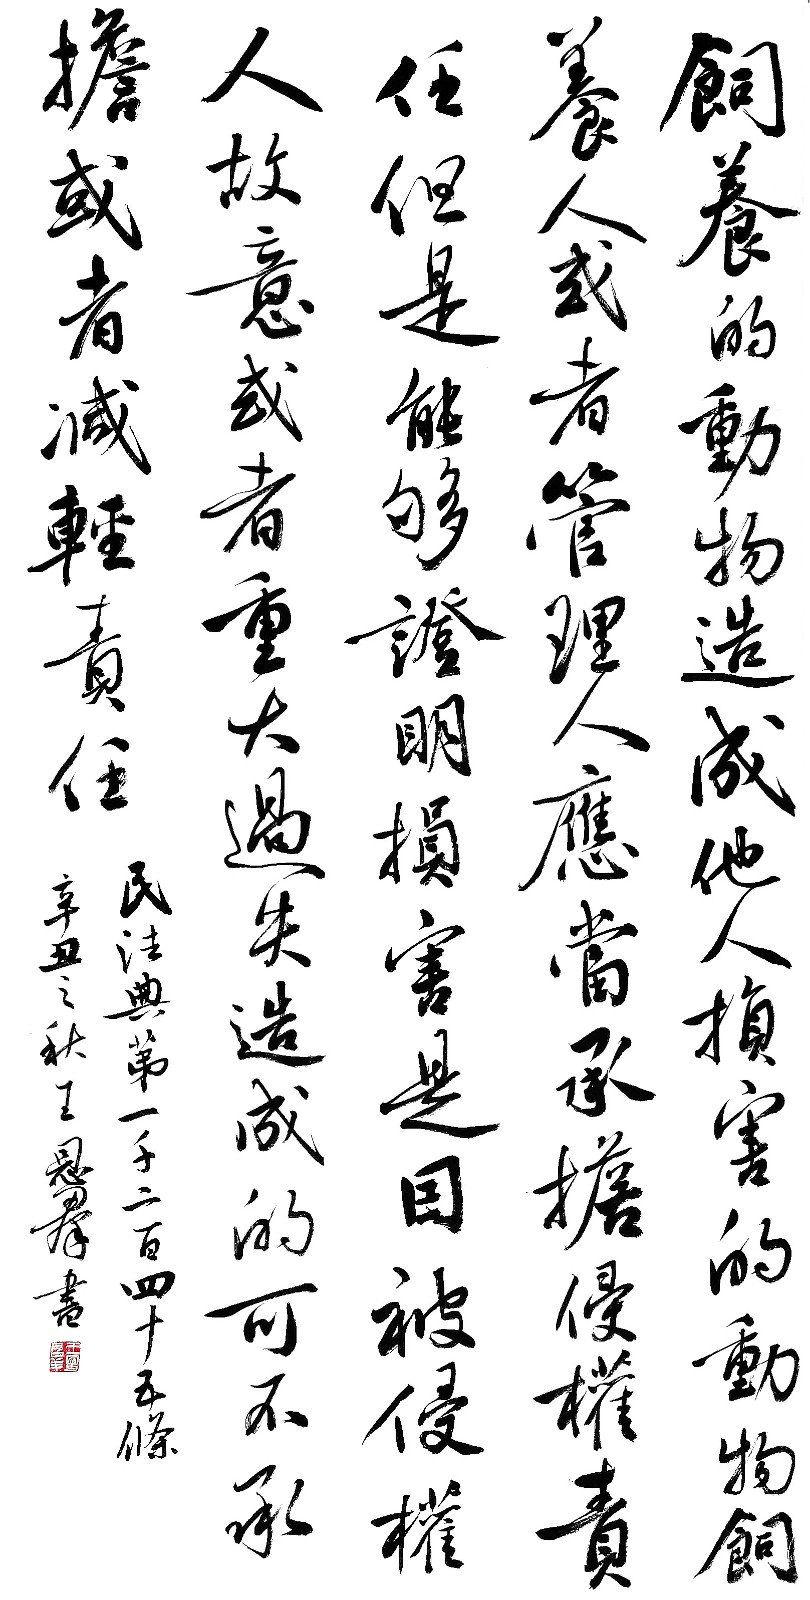 飼養的動物造成他人損害的動物飼
養人或者管理人應當承擔侵權責
任但是能够證明損害是因被侵權
人故意或者重大過失造成的可不承
擔或者減輕責任
民法典第一千二百四十五條
辛丑之秋王恩羣書